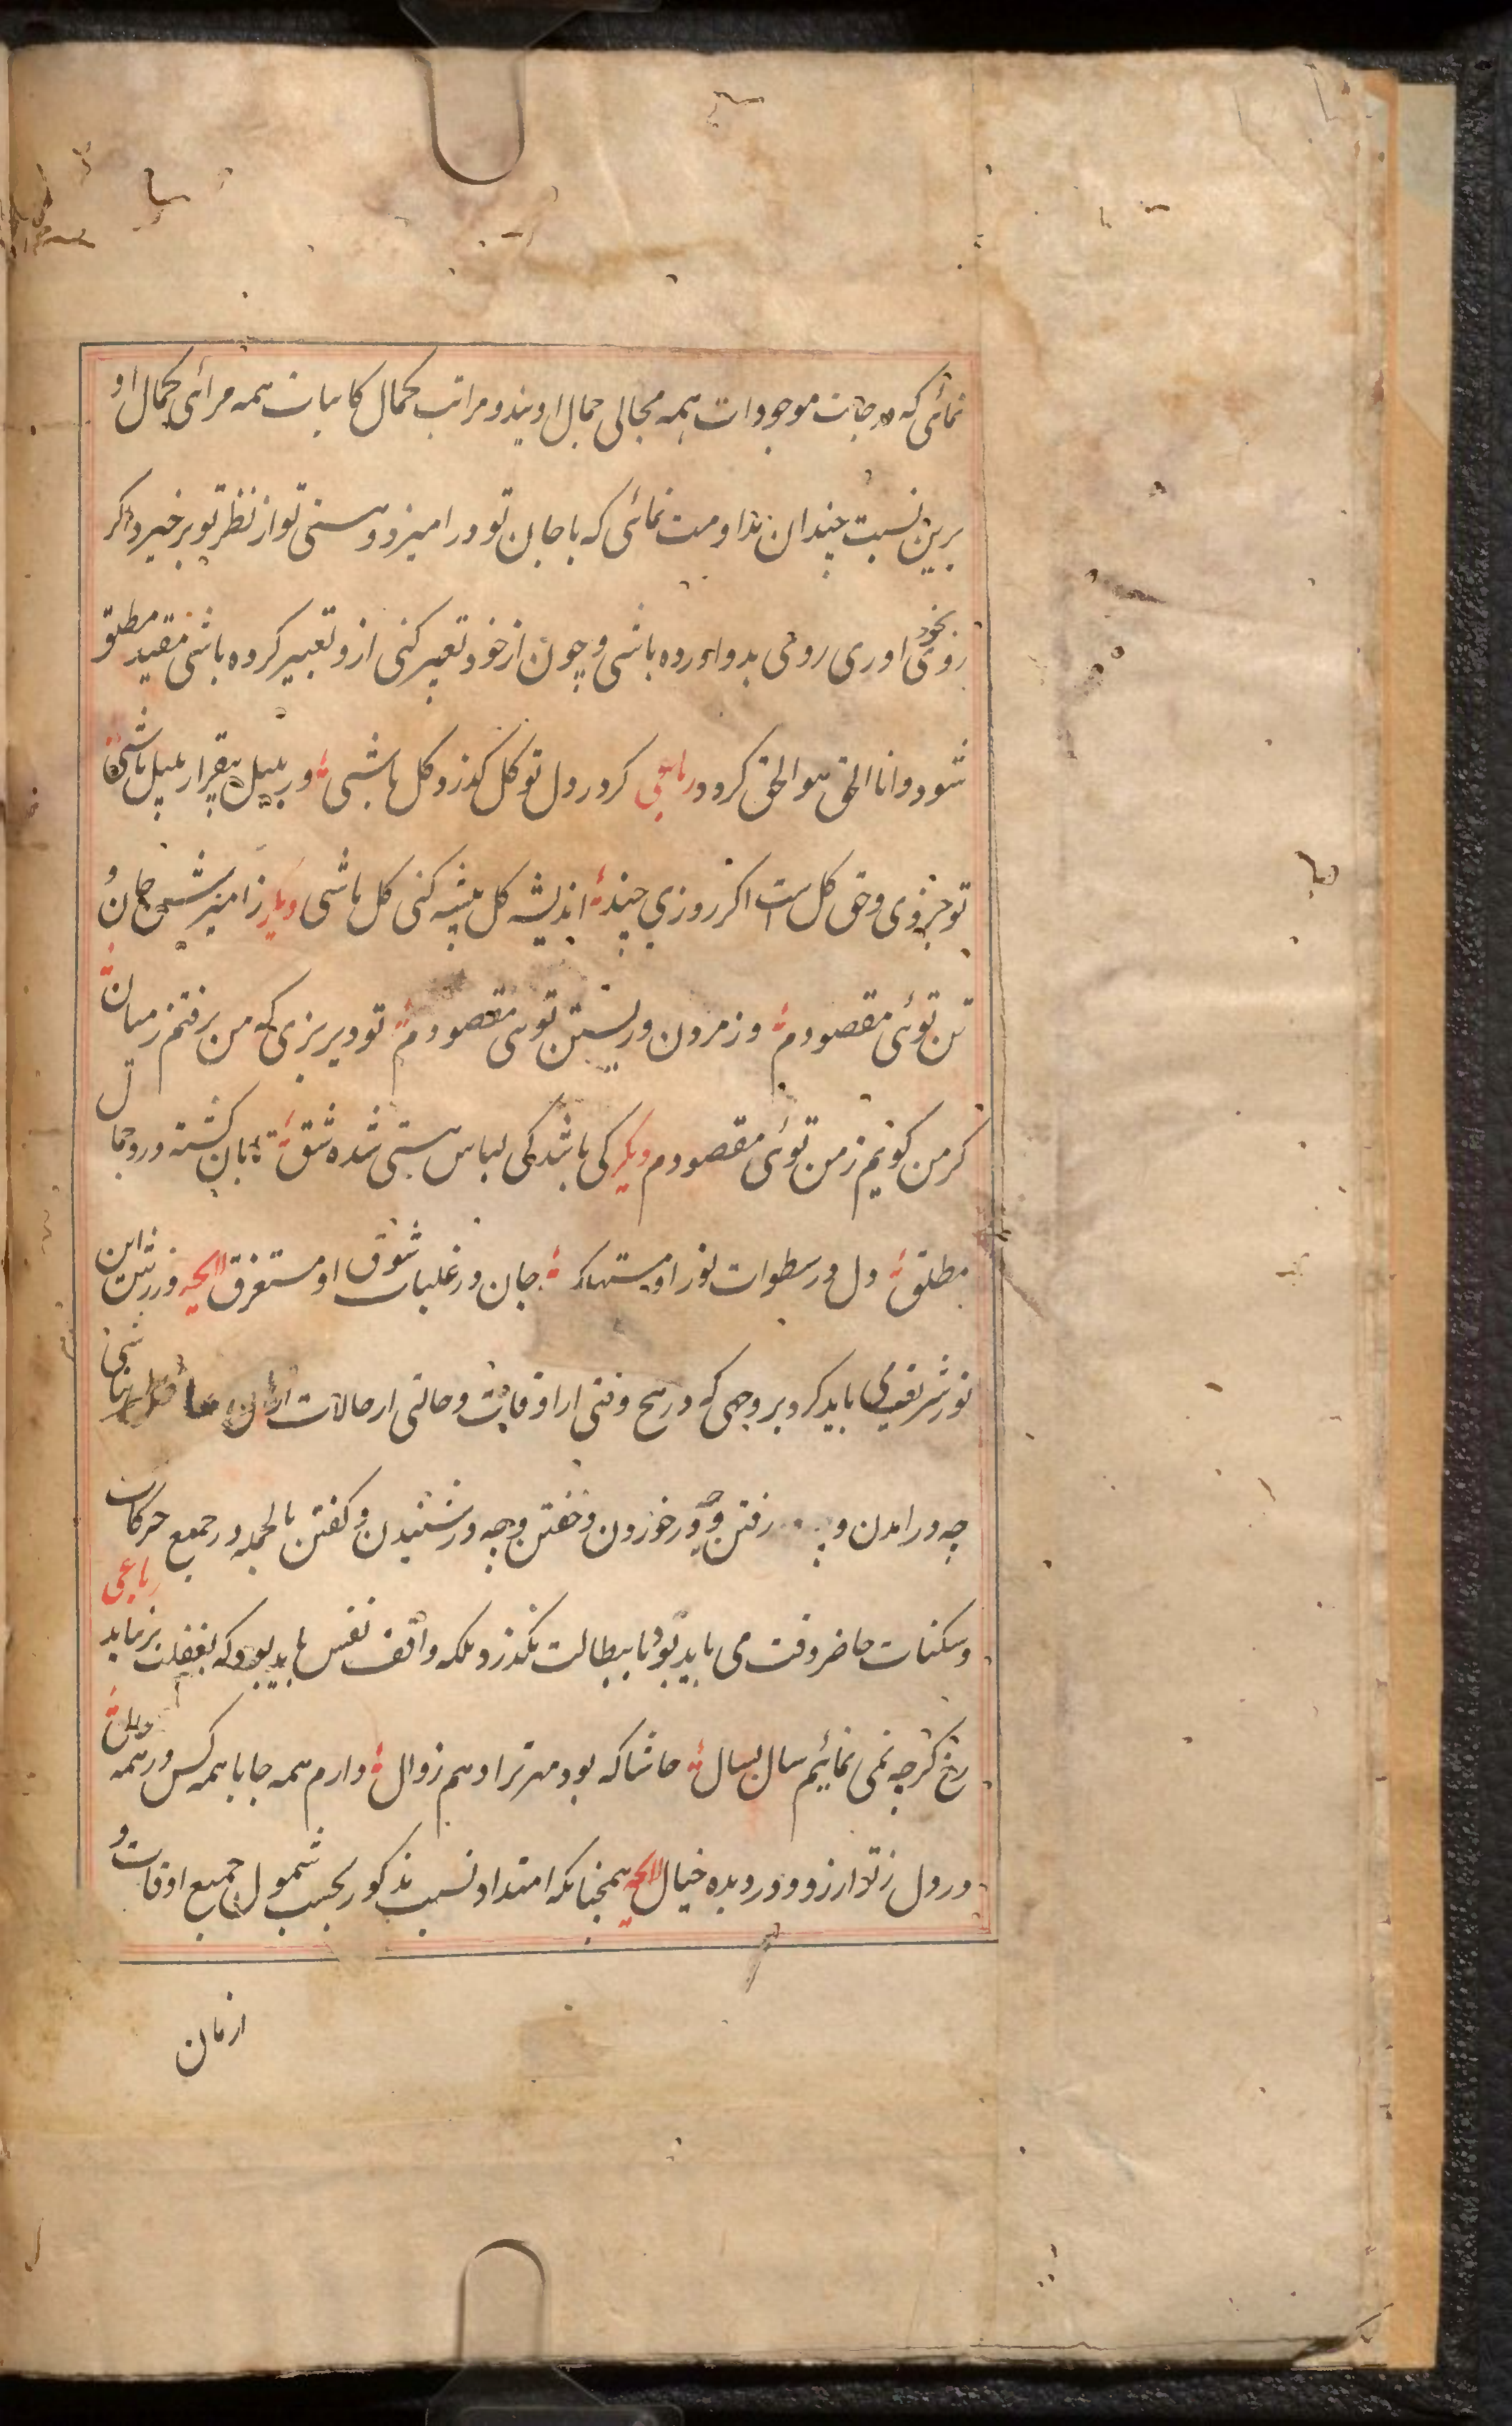 نمائی که درجات موجودات همه مجالی جمال اویند و مراتب کمال کاینات همه مرائی کمال او
برین نسبت چندان مداومت نمائی که با جان تو در امیزد و هستی تو از نظر تو برخیزد اگر
بخود
روی اوری روی بدو اورده باشی و چون از خود تعبیر کنی ازو تعبیر کرده باشی مقید مطلق
شود و انا الحق هو الحق کردد رباعی کر در دل تو کل کذرد کل باشی ور بلبل بیقرار بلبل باشی
تو جزوی و حق کل ست اکر روزی چند اندیشه کل پیشه کنی کل باشی دیکر ز امیزش جان و
تن توئی مقصودم وز مردن و زیستن توئی مقصودم تو دیر بزی که من برفتم ز میان
کر من کویم ز من توئی مقصودم دیکر کی باشد کی لباس هستی شده شق تابان کشته در و جمال
مطلق دل در سطوات نور او مستهلک جان در غلبات شوق او مستغرق لایحه ورزش این
نور شریف می باید کرد بر وجهی که در هیچ وقتی از اوقات و حالتی از حالات ازان خالی نباشی
چه در امدن و رفتن و چه در خوردن و خفتن و چه در شنیدن و کفتن بالجمله در جمیع حرکات
و سکنات حاضر وقت می باید بود تا ببطالت نکذرد بلکه واقف نفس باید بود که بغفلت بر نیاید رباعی
رخ کرچه نمی نمائیم سال بسال حاشا که بود مهر ترا وهم زوال دارم همه جا با همه کس در همه حال
در دل ز تو ارزو و در دیده خیال لایحه همچنانکه امتداد نسبت مذکور بحسب شمول جمیع اوقات و
ازمان